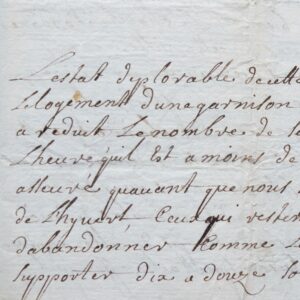 Lestat deplorable decette
Lelogement dunegarnison
a reduit Lenombre de
Lheure quil Est amoins de
asseure quauant que nous
de Lhyuert, Ceux qui rester
dabandonner Comme
supporter dix a douze